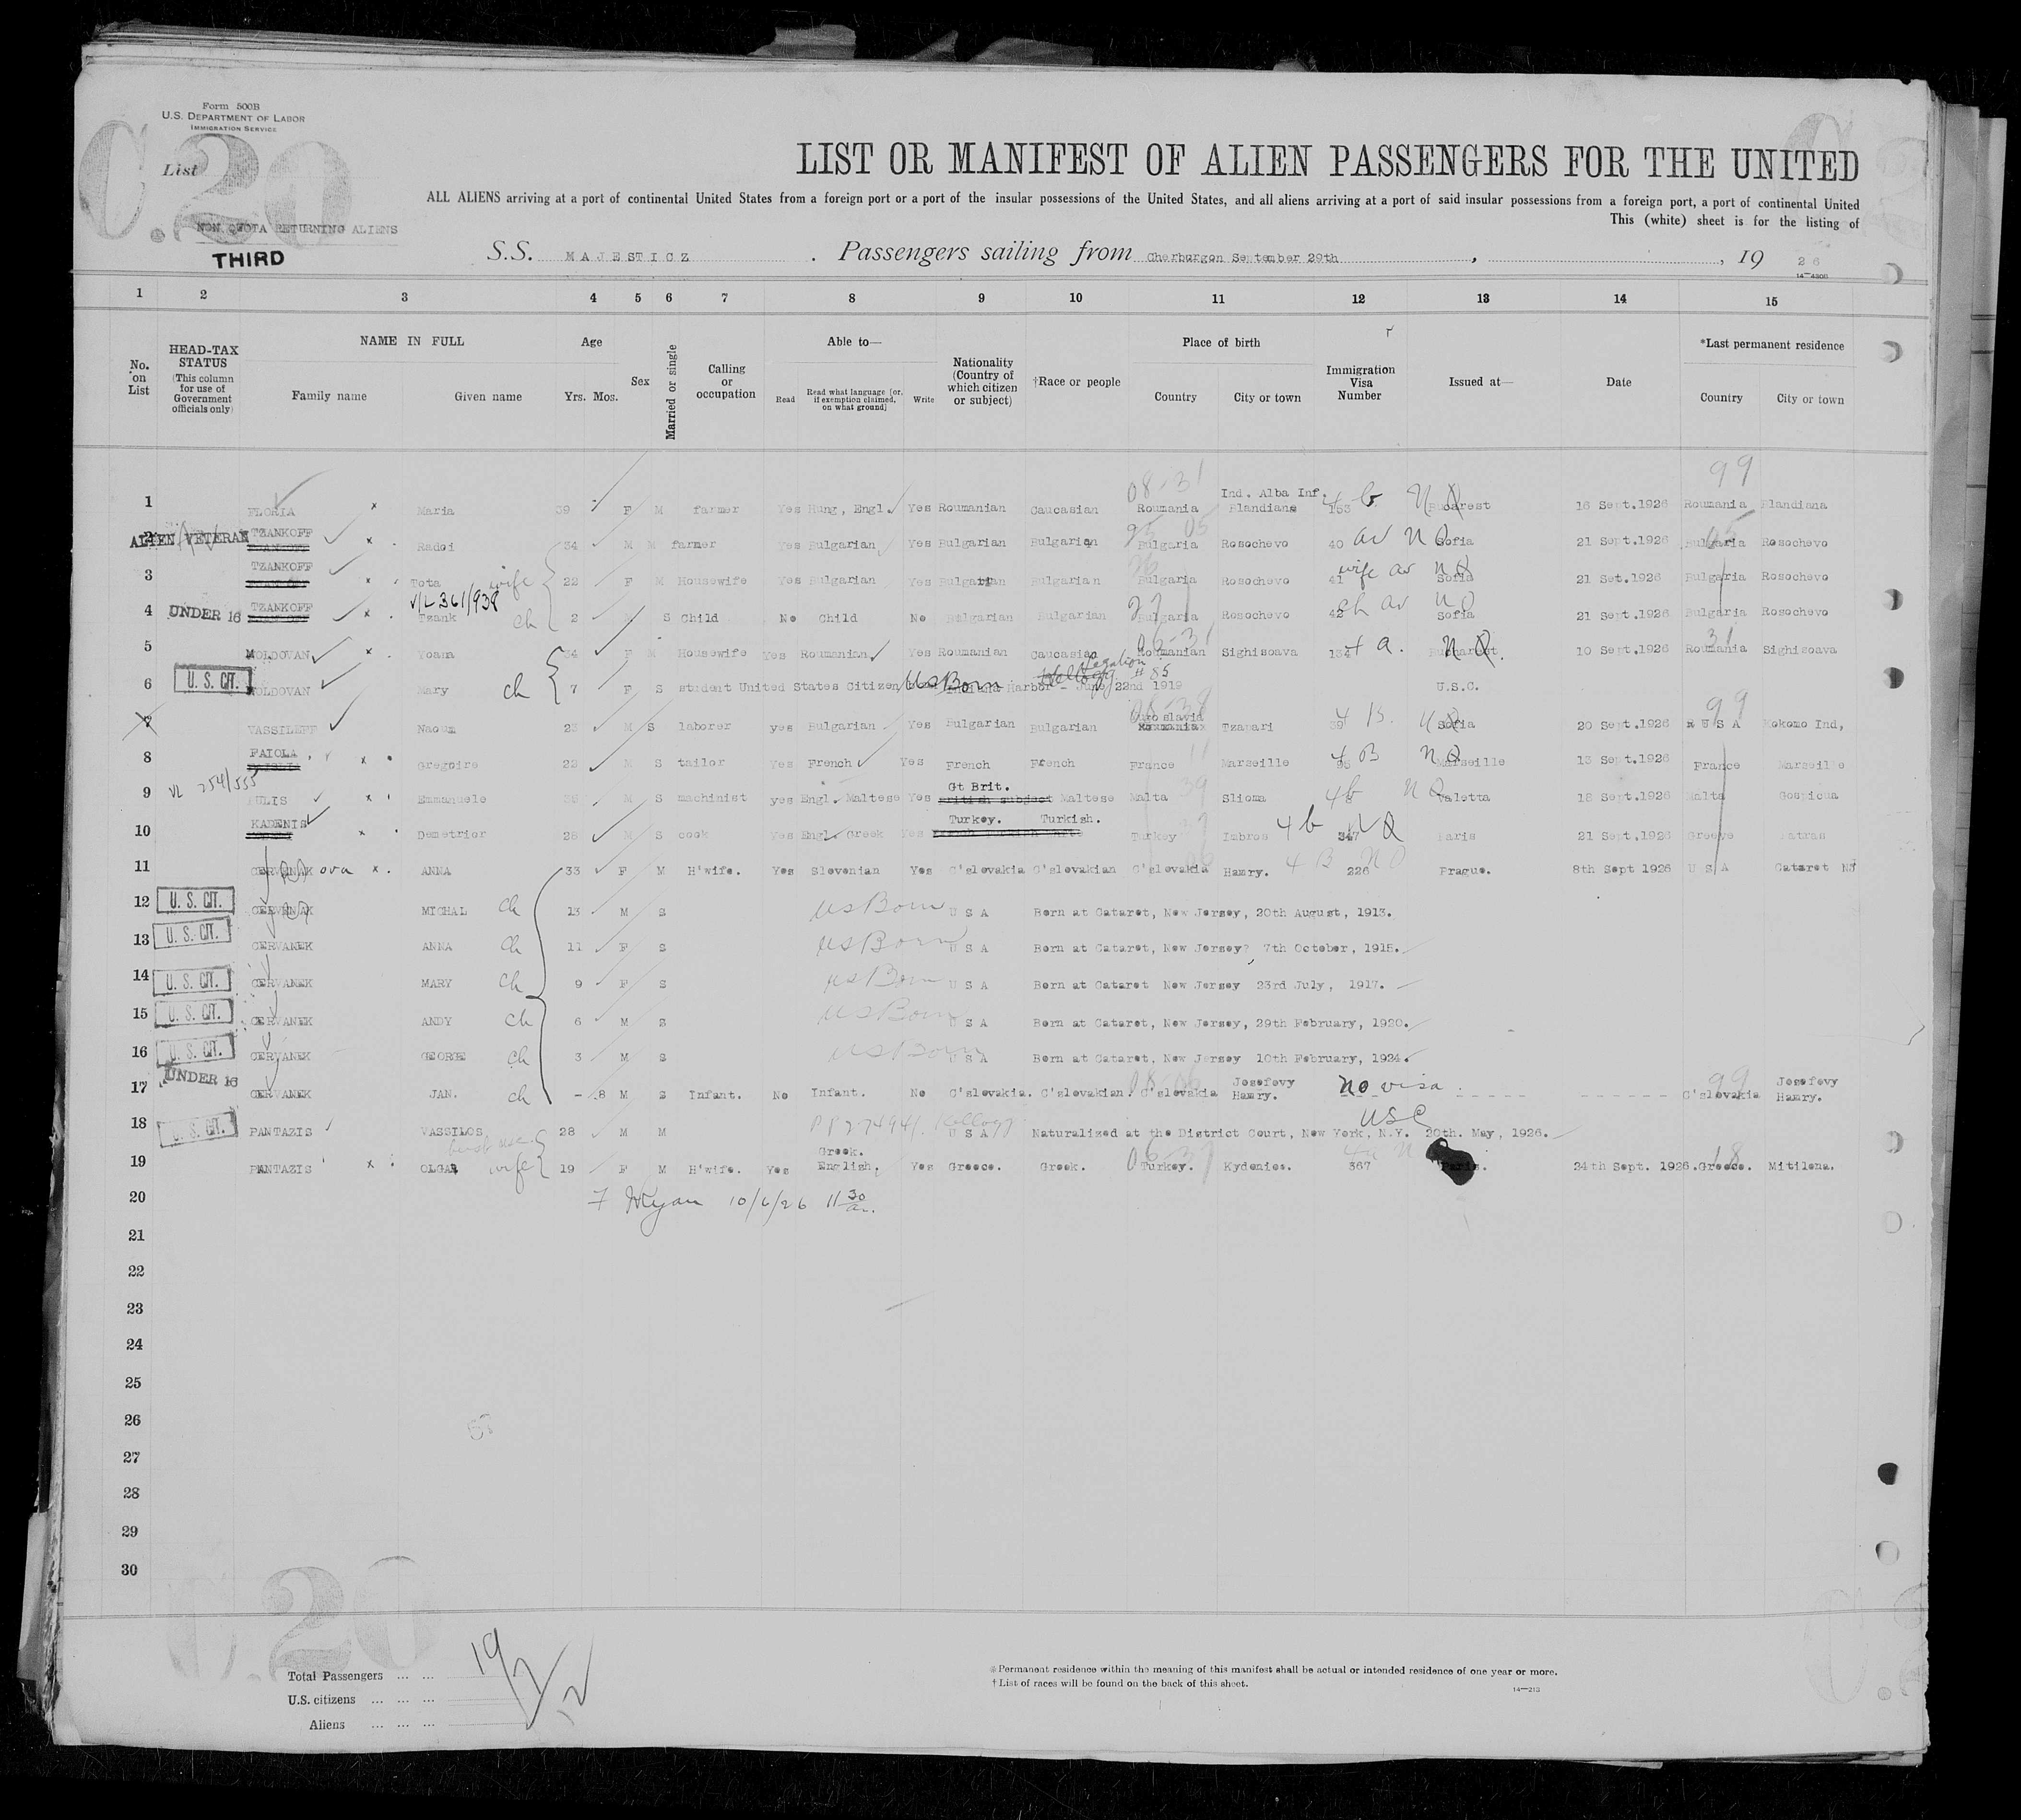 Form 500B
U.S. DEPARTMENT OF LABOR
IMMIGRATION SERVICE
C.20
List
NON QUOTA RETURNING ALIENS
THIRD
LIST OR MANIFEST OF ALIEN PASSENGERS FOR THE UNITED
ALL ALIENS arriving at a port of continental United States from a foreign port or a port of the insular possessions of the United States, and all aliens arriving at a port of said insular possessions from a foreign port, a port of continental United
This (white) sheet is for the listing of
S.S. MAJESTICZ. Passengers sailing from Cherburgon September 29th, 1926
14—4208
1 2 3 4 5 6 7 8 9 10 11 12 13 14 15
No. on List
HEAD-TAX STATUS (This column for use of Government officials only)
NAME IN FULL Family name Given name
Age Yrs. Mos.
Sex
Married or single
Calling or occupation
Able to— Read Read what language [or, if exemption claimed, on what ground] Write
Nationality (Country of which citizen or subject)
†Race or people
Place of birth Country City or town
Immigration Visa Number
Issued at—
Date
*Last permanent residence Country City or town
08-31 Ind. Alba Inf. 4 b N Q 99
1 FLORIA x Maria 39 F M farmer Yes Hung, Engl. Yes Roumanian Caucasian Roumania Blandiana 153 Bucarest 16 Sept.1926 Roumania Blandiana
ALIEN VETERAN 2 TZANKOFF x Radoi 34 M M farmer Yes Bulgarian Yes Bulgarian Bulgarian Bulgaria Rosochevo 40 av N Q Sofia 21 Sept.1926 Bulgaria Rosochevo
3 TZANKOFF x Tota wife 22 F M Housewife Yes Bulgarian Yes Bulgarian Bulgarian Bulgaria Rosochevo 41 wife av N Q Sofia 21 Set.1926 Bulgaria Rosochevo
V/L 361/938
4 UNDER 16 TZANKOFF x Tzank ch 2 M S Child No Child No Bulgarian Bulgarian Bulgaria Rosochevo 42 ch av N Q Sofia 21 Sept.1926 Bulgaria Rosochevo
5 MOLDOVAN x Yoana 34 F M Housewife Yes Roumanian Yes Roumanian Caucasian Roumanian Sighisoava 134 4 a. N Q. Bucharest. 10 Sept.1926 Roumania Sighisoava
6 U.S. CIT. MOLDOVAN Mary ch 7 F S student United States Citizen US Born Harbor - June 22nd 1919 Legation #85 U.S.C.
7 VASSILEFF Naoum 23 M S laborer yes Bulgarian Yes Bulgarian Bulgarian Yugo slavia Tzapari 39 Sofia 20 Sept.1926 U S A Kokomo Ind,
8 FAIOLA x Gregoire 22 M S tailor Yes French Yes French French France Marseille 4 B N Q Marseille 13 Sept.1926 France Marseille
VL 254/555
9 x Emmanuele M S machinist yes Engl. Maltese Yes Gt Brit. British subject Maltese Malta Sliema 4b N Q Valetta 18 Sept.1926 Malta Cospicua
10 KADENIS x Demetrior 26 M S cook Yes Engl. Greek Yes Turkey. Turkish. Turkey Imbros 4 b N Q 347 Paris 21 Sept.1926 Greeve Patras
11 ova x. ANNA 33 F M H'wife. Yes Slovenian Yes C'slovakia C'slovakian C'slovakia Hamry. 4 B N Q 226 Prague. 8th Sept 1926 U S A Cataret NJ
12 U. S. CIT. MICHAL ch 13 M S US Born U S A Born at Cataret, New Jersey, 20th August, 1913.
13 U. S. CIT. CERVANEK ANNA ch 11 F S US Born U S A Born at Cataret, New Jersey? 7th October, 1915.
14 U. S. CIT. CERVANEK MARY ch 9 F S US Born U S A Born at Cataret New Jersey 23rd July, 1917.
15 U. S. CIT. CERVANEK ANDY ch 6 M S US Born U S A Born at Cataret, New Jersey, 29th February, 1920.
16 U. S. CIT. CERVANEK GEORGE ch 3 M S US Born U S A Born at Cataret, New Jersey 10th February, 1924.
17 UNDER 16 CERVANEK JAN. ch - 8 M S Infant. No Infant. No C'slovakia. C'slovakian. C'slovakia Josefovy Hamry. No visa. 99 C'slovakia Josefovy Hamry.
18 U. S. CIT. PANTAZIS VASSILOS 28 M M PP 274941 Kellogg U S A Naturalized at the District Court, New York, N.Y. 20th. May, 1926. USC
19 PANTAZIS x OLGA wife 19 F M H'wife. Yes Greek. English, Yes Greece. Greek. Turkey. Kydonies. 367 Paris. 24th Sept. 1926. Greece. Mitilena.
20 10/6/26 11 30 a.
21
22
23
24
25
26
27
28
29
30
C.20
Total Passengers ... ... 19
U.S. citizens ... ... ... 7
Aliens ... ... ... 12
*Permanent residence within the meaning of this manifest shall be actual or intended residence of one year or more.
†List of races will be found on the back of this sheet.
14—213